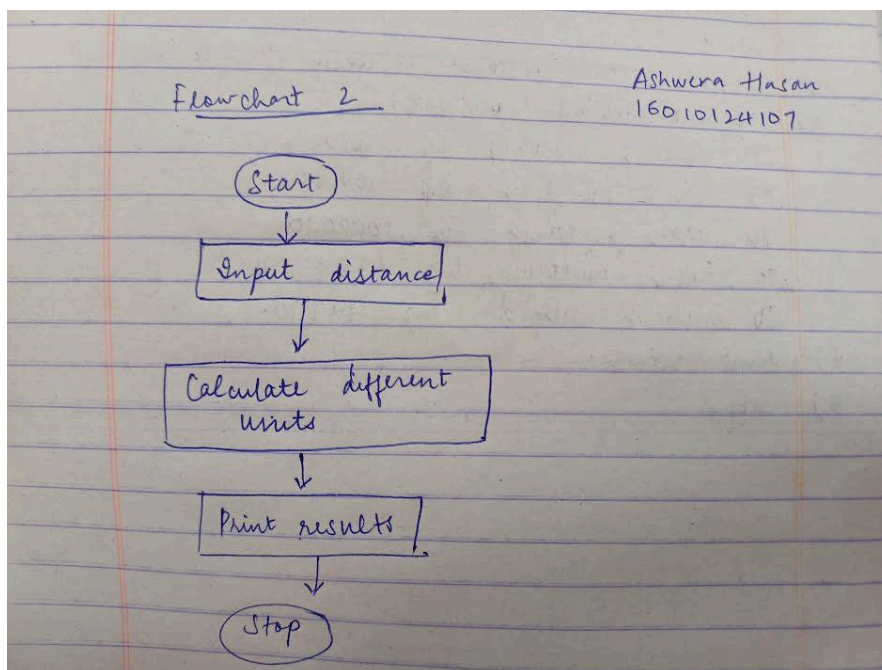 Flowchart 2
Ashwera Hasan
16010124107
Start
Input distance
Calculate different
units
Print results
Stop